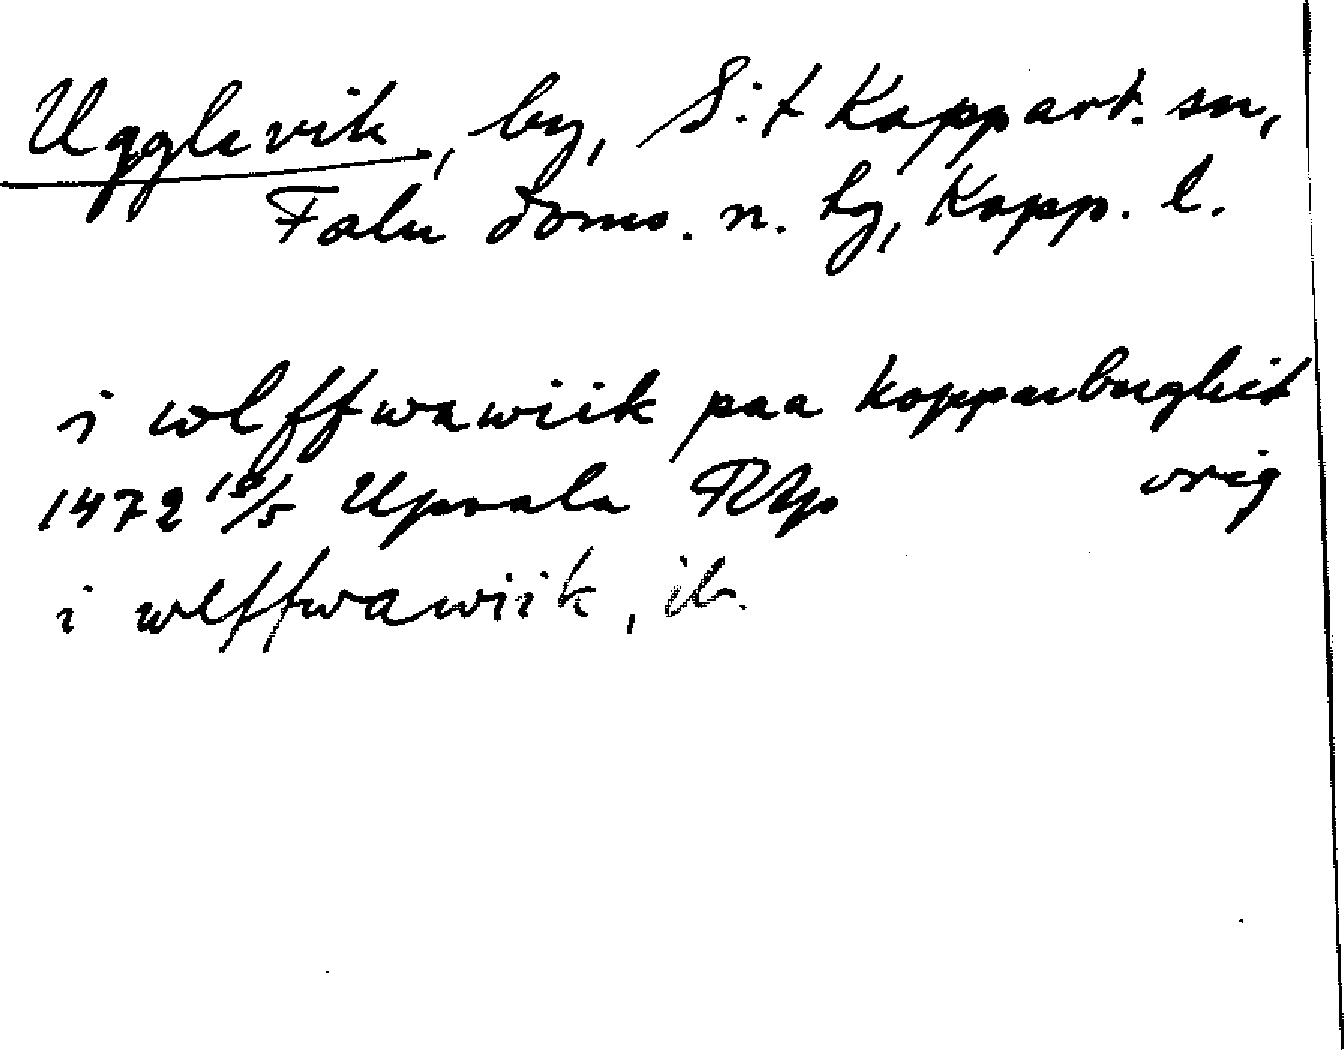 Ugglevik, by, S:t Kopparb. sn,
Falu doms. n. tg, Kopp. l.
i wlffwawiik paa kopparberghit
1472 10/5 Upsala RAp orig
i wlffwawiik, ib.